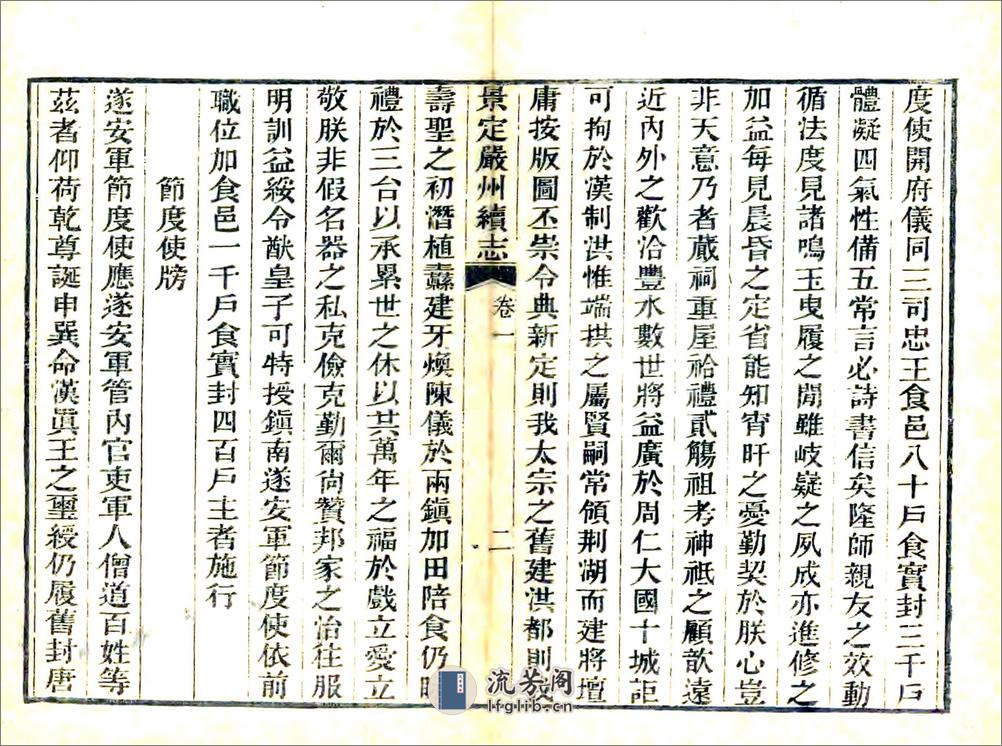 度使開府儀同三司忠王食邑八十戶食實封三千戶
體凝四氣性備五常言必詩書信矣隆師親友之效動
循法度見諸鳴玉曳履之閒雖岐疑之夙成亦進修之
加益每見晨昏之定省能知宵旰之憂勤契於朕心豈
非天意乃者蕆祠重屋祫禮貳觴祖考神祗之顧歆遠
近內外之歡洽豐水數世將益廣於周仁大國十城詎
可拘於漢制洪惟端拱之屬賢嗣常領荆湖而建將壇
庸按版圖丕崇令典新定則我太宗之舊建洪都則
景定嚴州續志 卷一 二
壽聖之初潛植纛建牙煥陳儀於兩鎮加田陪食仍
禮於三台以承累世之休以其萬年之福於戲立愛立
敬朕非假名器之私克儉克勤爾尙贊邦家之治往服
明訓益綏令猷皇子可特授鎮南遂安軍節度使依前
職位加食邑一千戶食實封四百戶主者施行
節度使牓
遂安軍節度使應遂安軍管內官吏軍人僧道百姓等
茲者仰荷乾尊誕申巽命漢眞王之璽綬仍履舊封唐
流芳阁
lfglib.cn